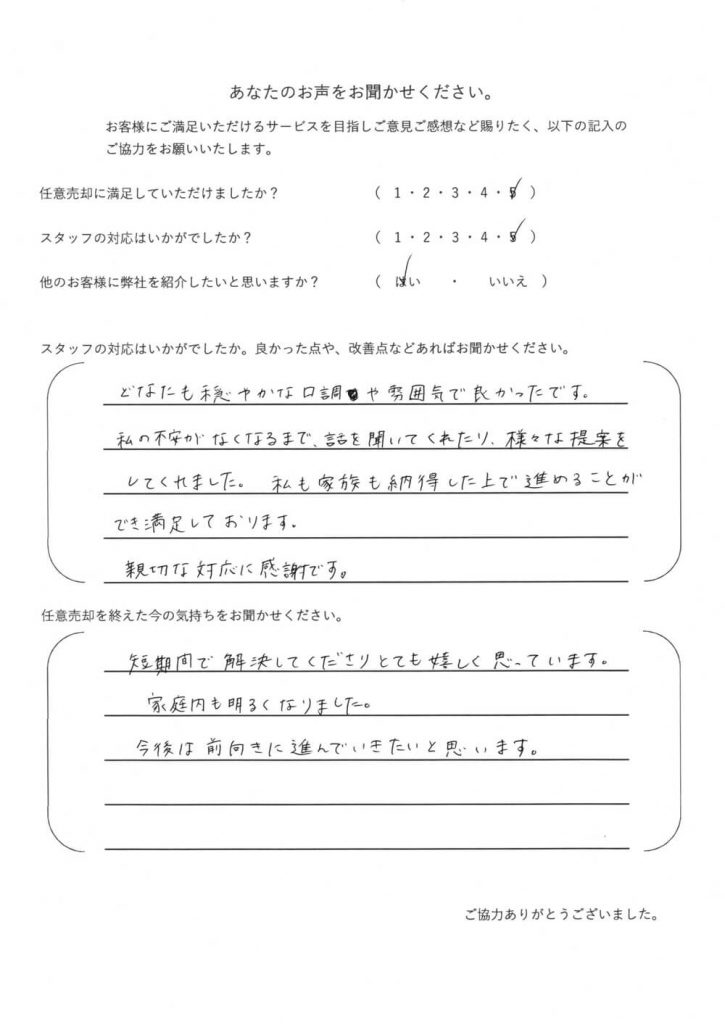 あなたのお声をお聞かせください。
お客様にご満足いただけるサービスを目指しご意見ご感想など賜りたく、以下の記入の
ご協力をお願いいたします。
任意売却に満足していただけましたか？ （ 1・2・3・4・5 ）
スタッフの対応はいかがでしたか？ （ 1・2・3・4・5 ）
他のお客様に弊社を紹介したいと思いますか？ （ はい ・ いいえ ）
スタッフの対応はいかがでしたか。良かった点や、改善点などあればお聞かせください。
どなたも穏やかな口調や雰囲気で良かったです。
私の不安がなくなるまで、話を聞いてくれたり、様々な提案を
してくれました。 私も家族も納得した上で進めることが
でき満足しております。
親切な対応に感謝です。
任意売却を終えた今の気持ちをお聞かせください。
短期間で解決してくださりとても嬉しく思っています。
家庭内も明るくなりました。
今後は前向きに進んでいきたいと思います。
ご協力ありがとうございました。